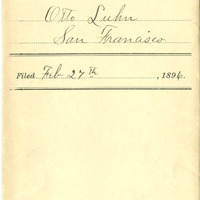 Otto Luhn
San Francisco
Filed Feb 27th, 1896.